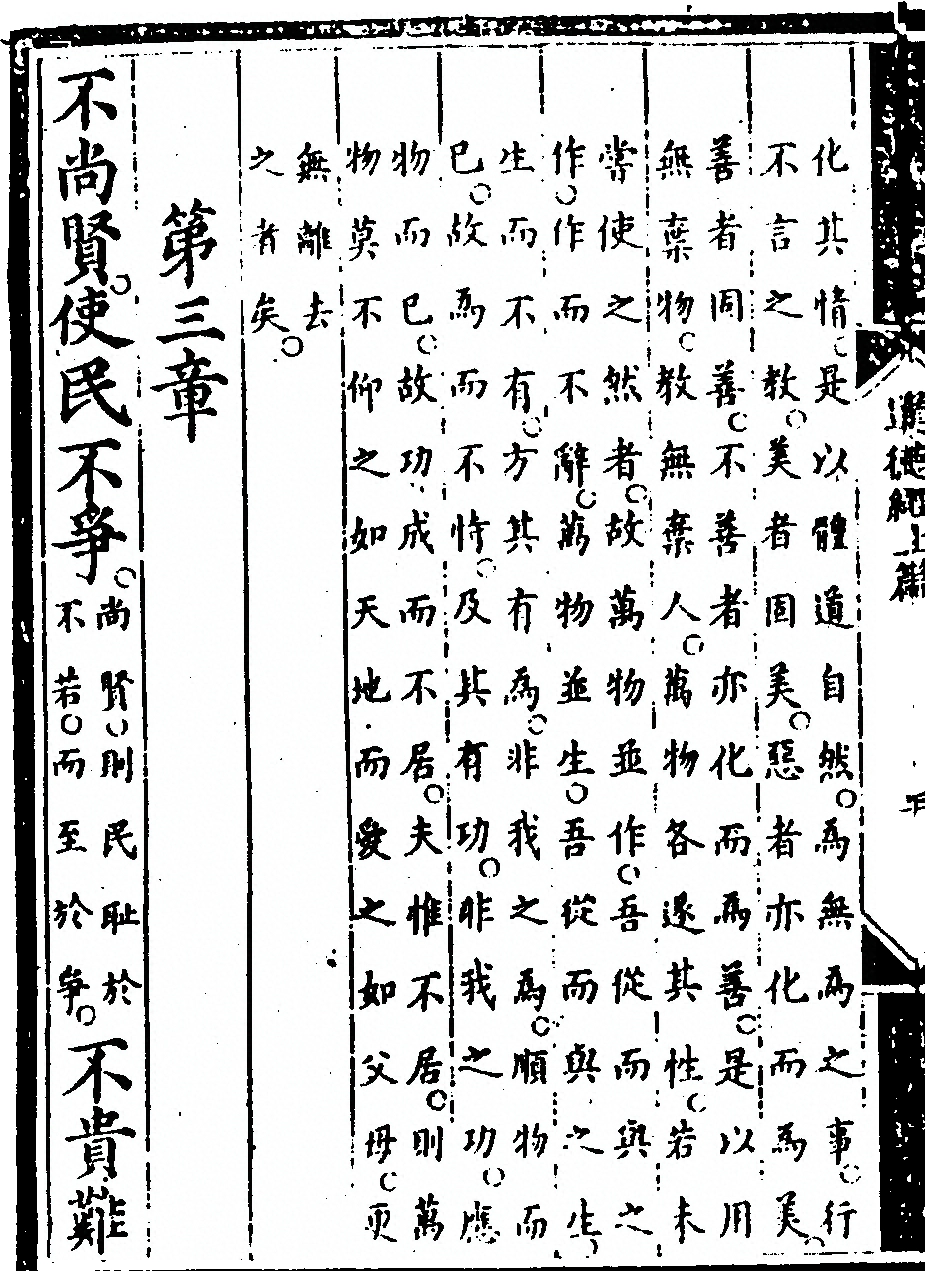 化其情。是以體道自然。為無為之事。行
不言之教。美者固美。惡者亦化而為美。
善者固善。不善者亦化而為善。是以用
無棄物。教無棄人。萬物各遂其性。若未
嘗使之然者。故萬物並作。吾從而與之
作。作而不辭。萬物並生。吾從而與之生。
生而不有。方其有為。非我之為。順物而
已。故為而不恃。及其有功。非我之功。應
物而已。故功成而不居。夫惟不居。則萬
物莫不仰之如天地而愛之如父母。更
無離去
之者矣。
第三章
不尚賢。使民不爭。尚賢。則民耻於不若。而至於爭。不貴難